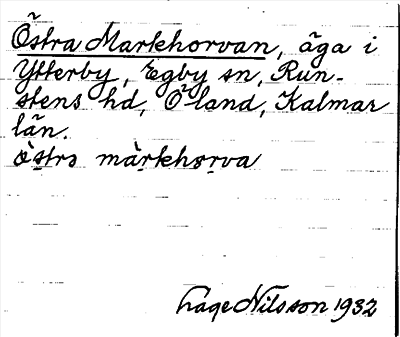 Östra Markhorvan, äga i
Ytterby, Egby sn, Run-
stens hd, Öland, Kalmar
län.
ö̀strɔ màrkhɔrva
Lage Nilsson 1932